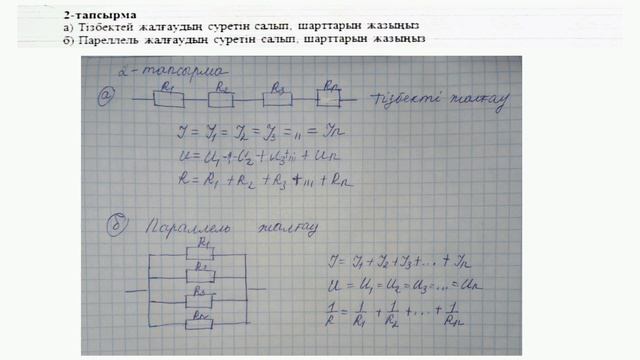 2-тапсырма
а) Тізбектей жалғаудың суретін салып, шарттарын жазыңыз
б) Пареллель жалғаудың суретін салып, шарттарын жазыңыз
2-тапсырма
а) R1 R2 R3 Rn тізбекті жалғау
I = I1 = I2 = I3 = ıı = In
U = U1 + U2 + U3 + ııı + Un
R = R1 + R2 + R3 + ııı + Rn
б) Параллель жалғау
R1
R2
R3
Rn
I = I1 + I2 + I3 + ... + In
U = U1 = U2 = U3 = ... = Un
1/R = 1/R1 + 1/R2 + ... + 1/Rn